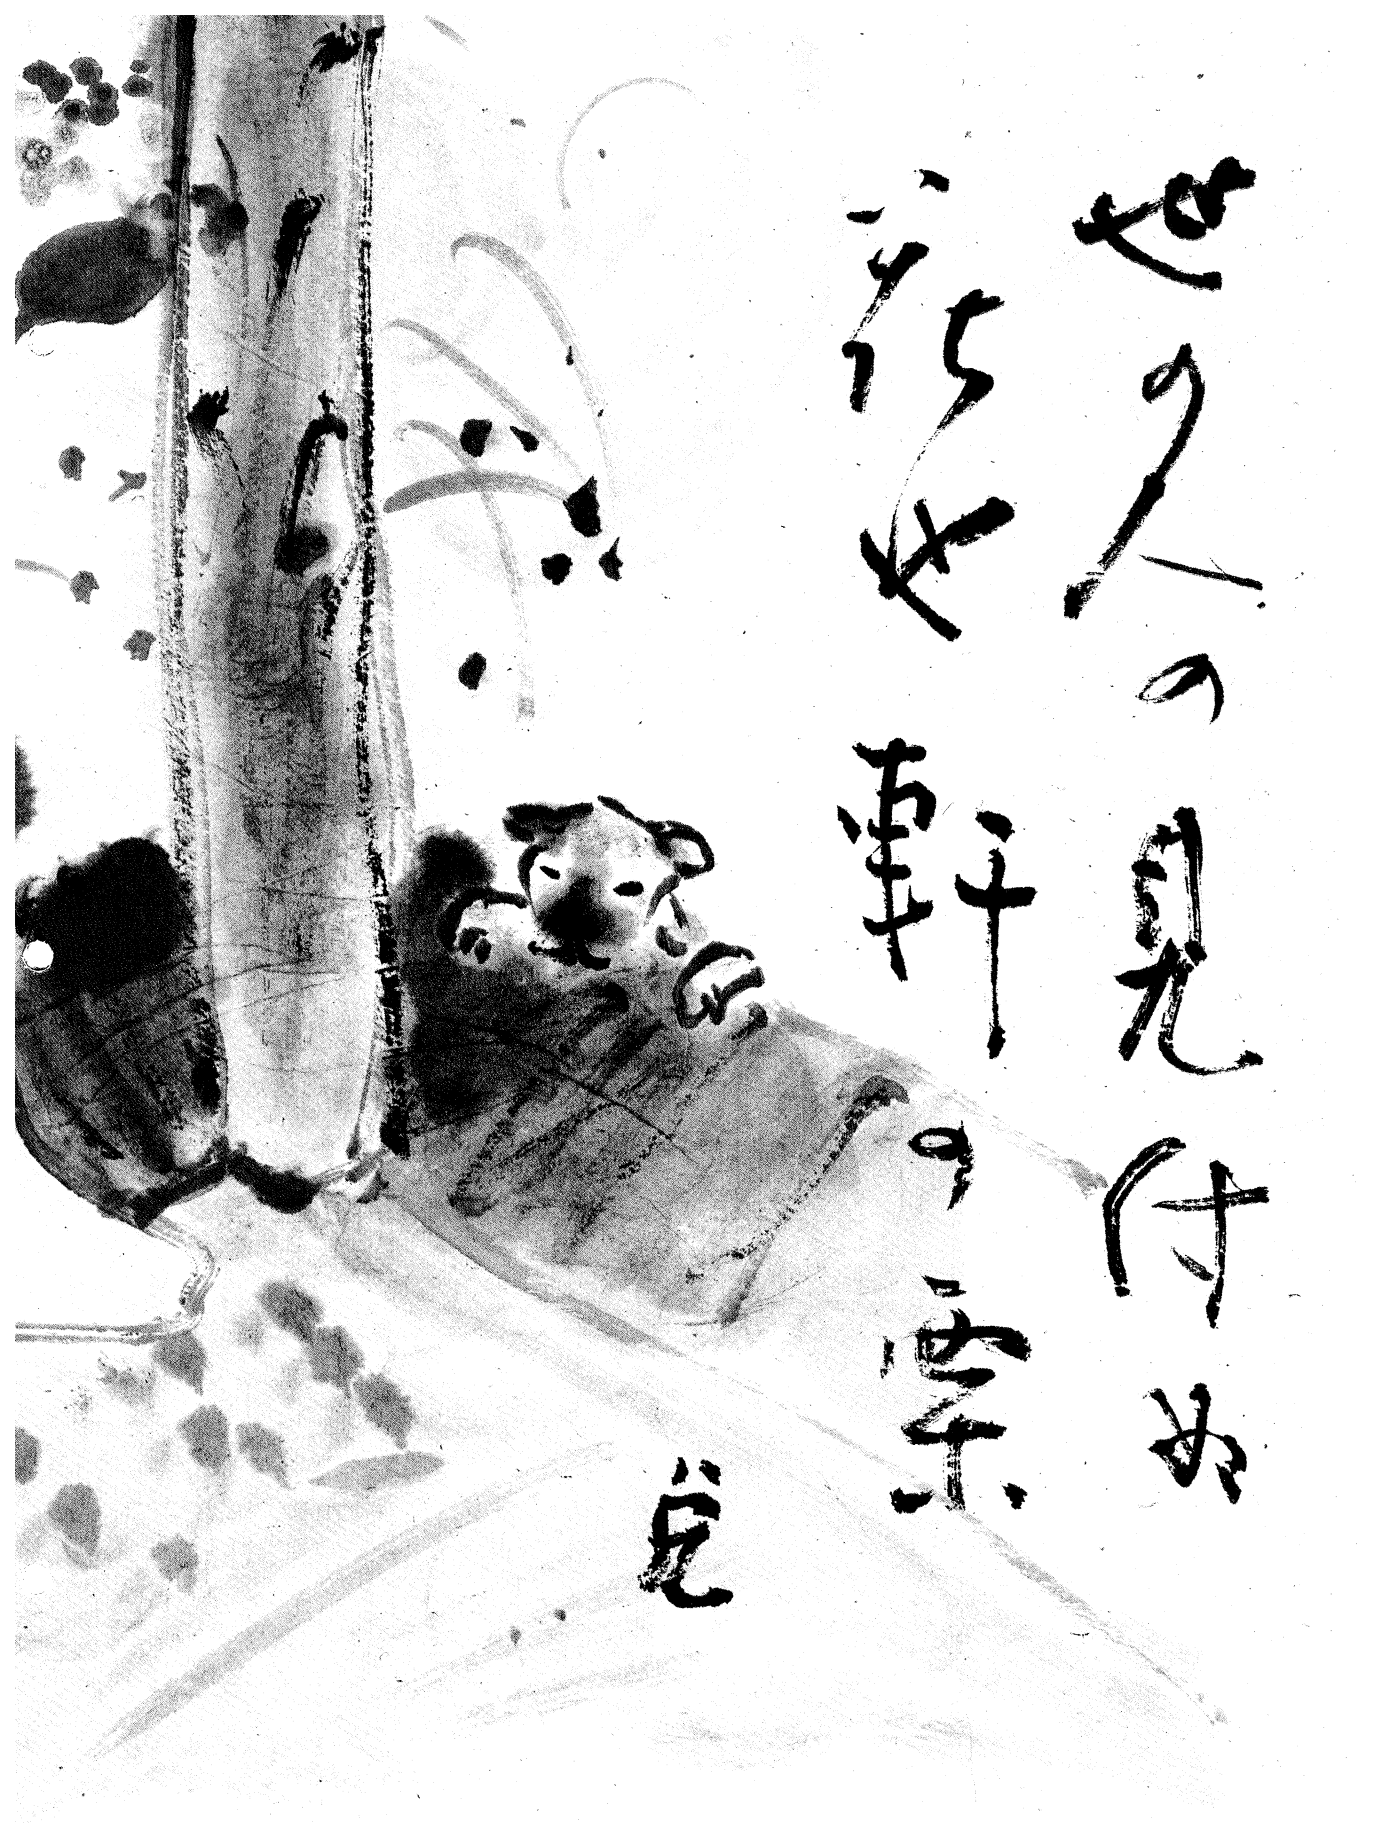 世の人の見付ぬ
花や軒の栗